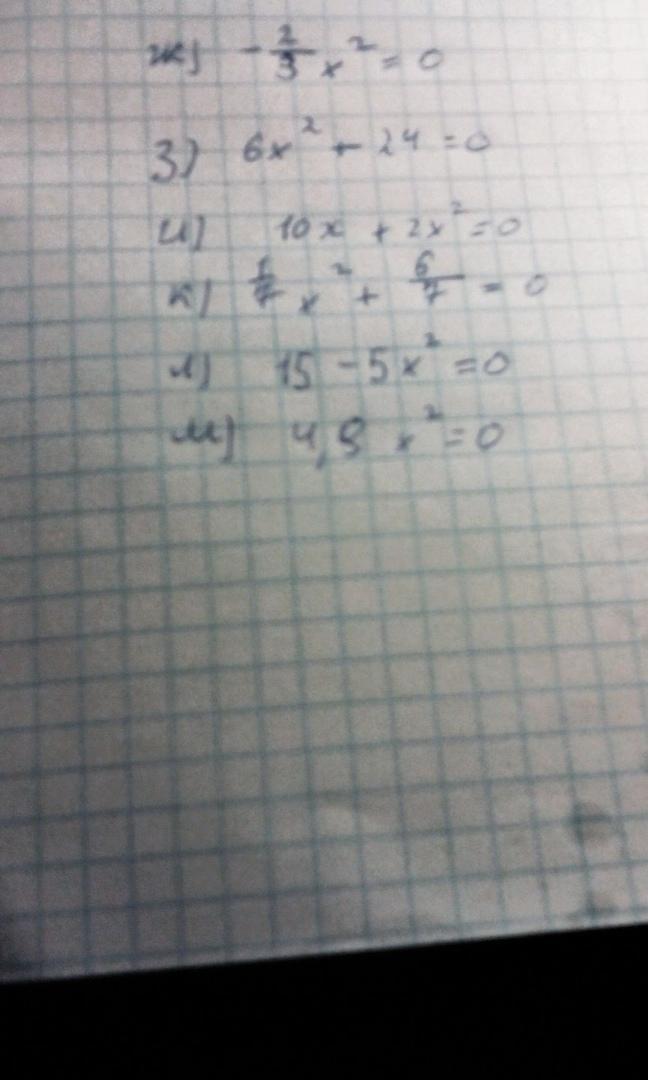 ж) -2/3 x² = 0
з) 6x² + 24 = 0
и) 10x + 2x² = 0
к) 1/7 x² + 6/7 = 0
л) 15 - 5x² = 0
м) 4,9 x² = 0